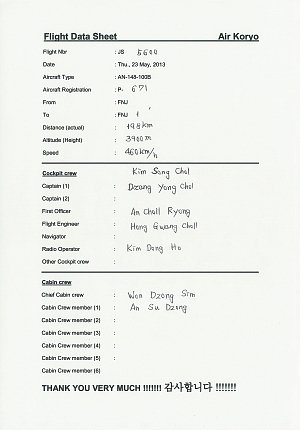 Flight Data Sheet Air Koryo
Flight Nbr : JS 5600
Date : Thu., 23 May, 2013
Aircraft Type : AN-148-100B
Aircraft Registration : P- 671
From : FNJ
To : FNJ
Distance (actual) : 198 km
Altitude (Height) : 3900 m
Speed : 460 km/h
Cockpit crew Kim Song Chol
Captain (1) : Dzang Yong Chol
Captain (2) :
First Officer : An Choll Ryong
Flight Engineer : Hong Gwang Choll
Navigator :
Radio Operator : Kim Dong Ho
Other Cockpit crew :
Cabin crew
Chief Cabin crew : Won Dzong Sim
Cabin Crew member (1) : An Su Dzong
Cabin Crew member (2) :
Cabin Crew member (3) :
Cabin Crew member (4) :
Cabin Crew member (5) :
Cabin Crew member (6)
THANK YOU VERY MUCH !!!!!!! 감사합니다 !!!!!!!